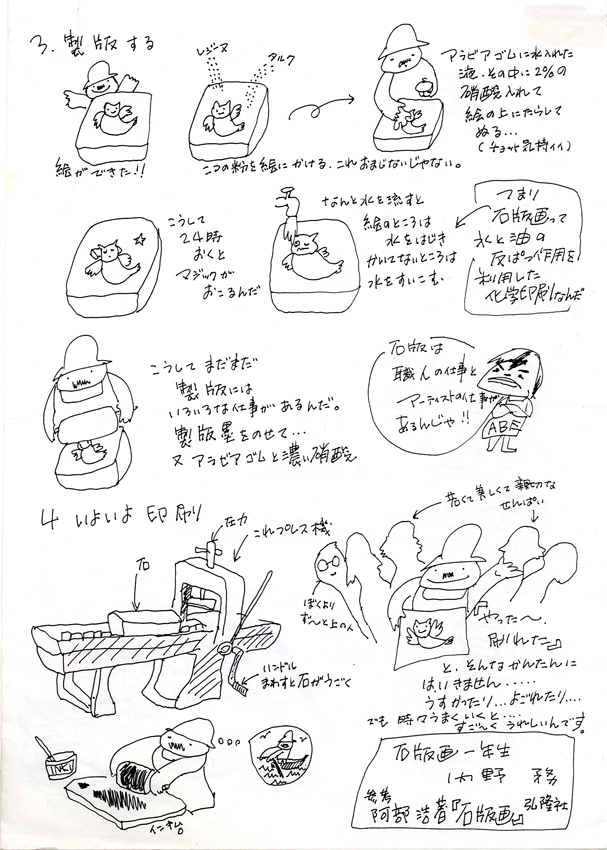 3. 製版する
レジーヌ
タルク
アラビアゴムに水入れた
液.その中に2%の
硝酸入れて
絵の上にたらして
ぬる...
(チョット気持イイ)
絵ができた!!
二つの粉を絵にかける.これおまじないじゃない。
こうして
24時
おくと
マジックが
おこるんだ
なんと水を流すと
絵のところは
水をはじき
かいてないところは
水をすいこむ.
つまり
石版画って
水と油の
反ぱつ作用を
利用した
化学印刷なんだ
こうしてまだまだ
製版には
いろいろな仕事があるんだ。
製版墨をのせて...
又アラビアゴムと濃い硝酸
石版は
職人の仕事と
アーティストの仕事が
あるんじゃ!!
ABE
4 いよいよ印刷
圧力
これプレス機
石
ハンドル
まわすと石がうごく
若くて美しくて親切な
せんぱい
ぼくより
ず〜と上の人
『やった〜.
刷れた』
と.そんなかんたんに
はいきません.....
うすかったり...よごれたり....
でも時々うまくいくと...
すごくうれしいんです。
INK
インキ台
石版画一年生
内野 務
参考
阿部浩著『石版画』弘隆社